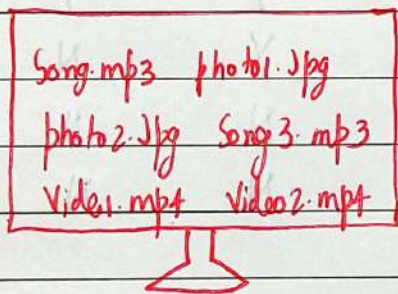 Song.mp3 photo1.Jpg
photo2.Jpg Song3.mp3
Video1.mp4 Video2.mp4